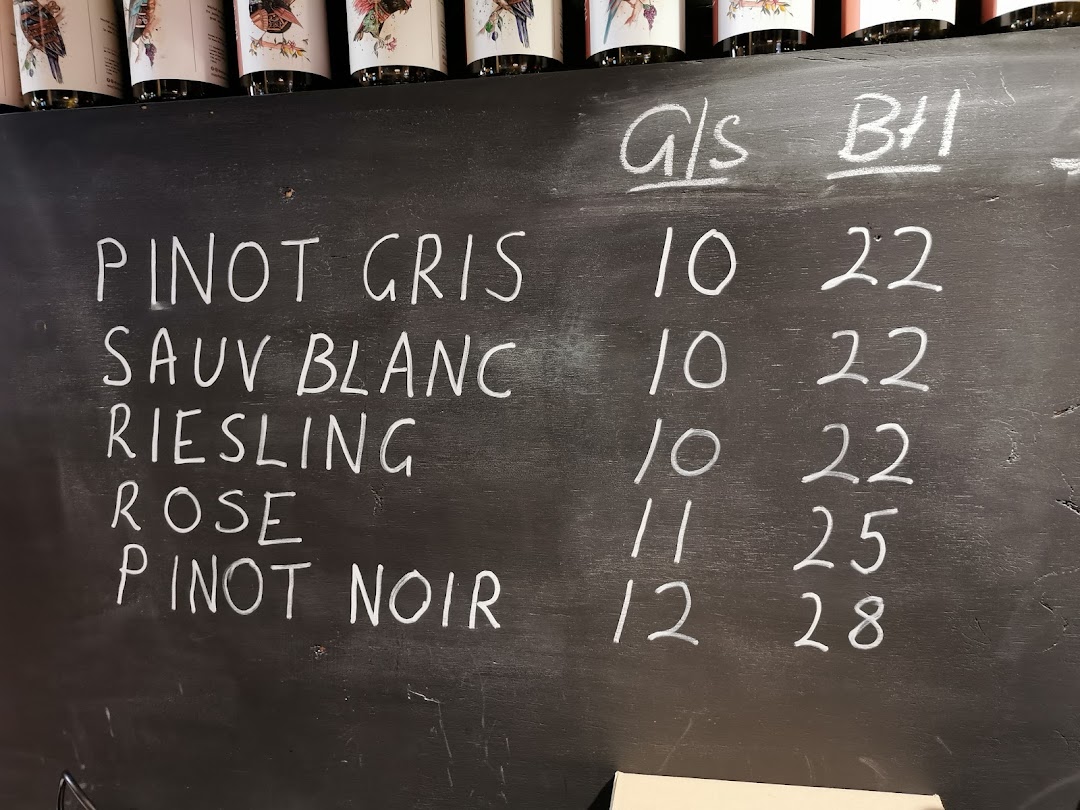 G/s Btl
PINOT GRIS 10 22
SAUV BLANC 10 22
RIESLING 10 22
ROSE 11 25
PINOT NOIR 12 28